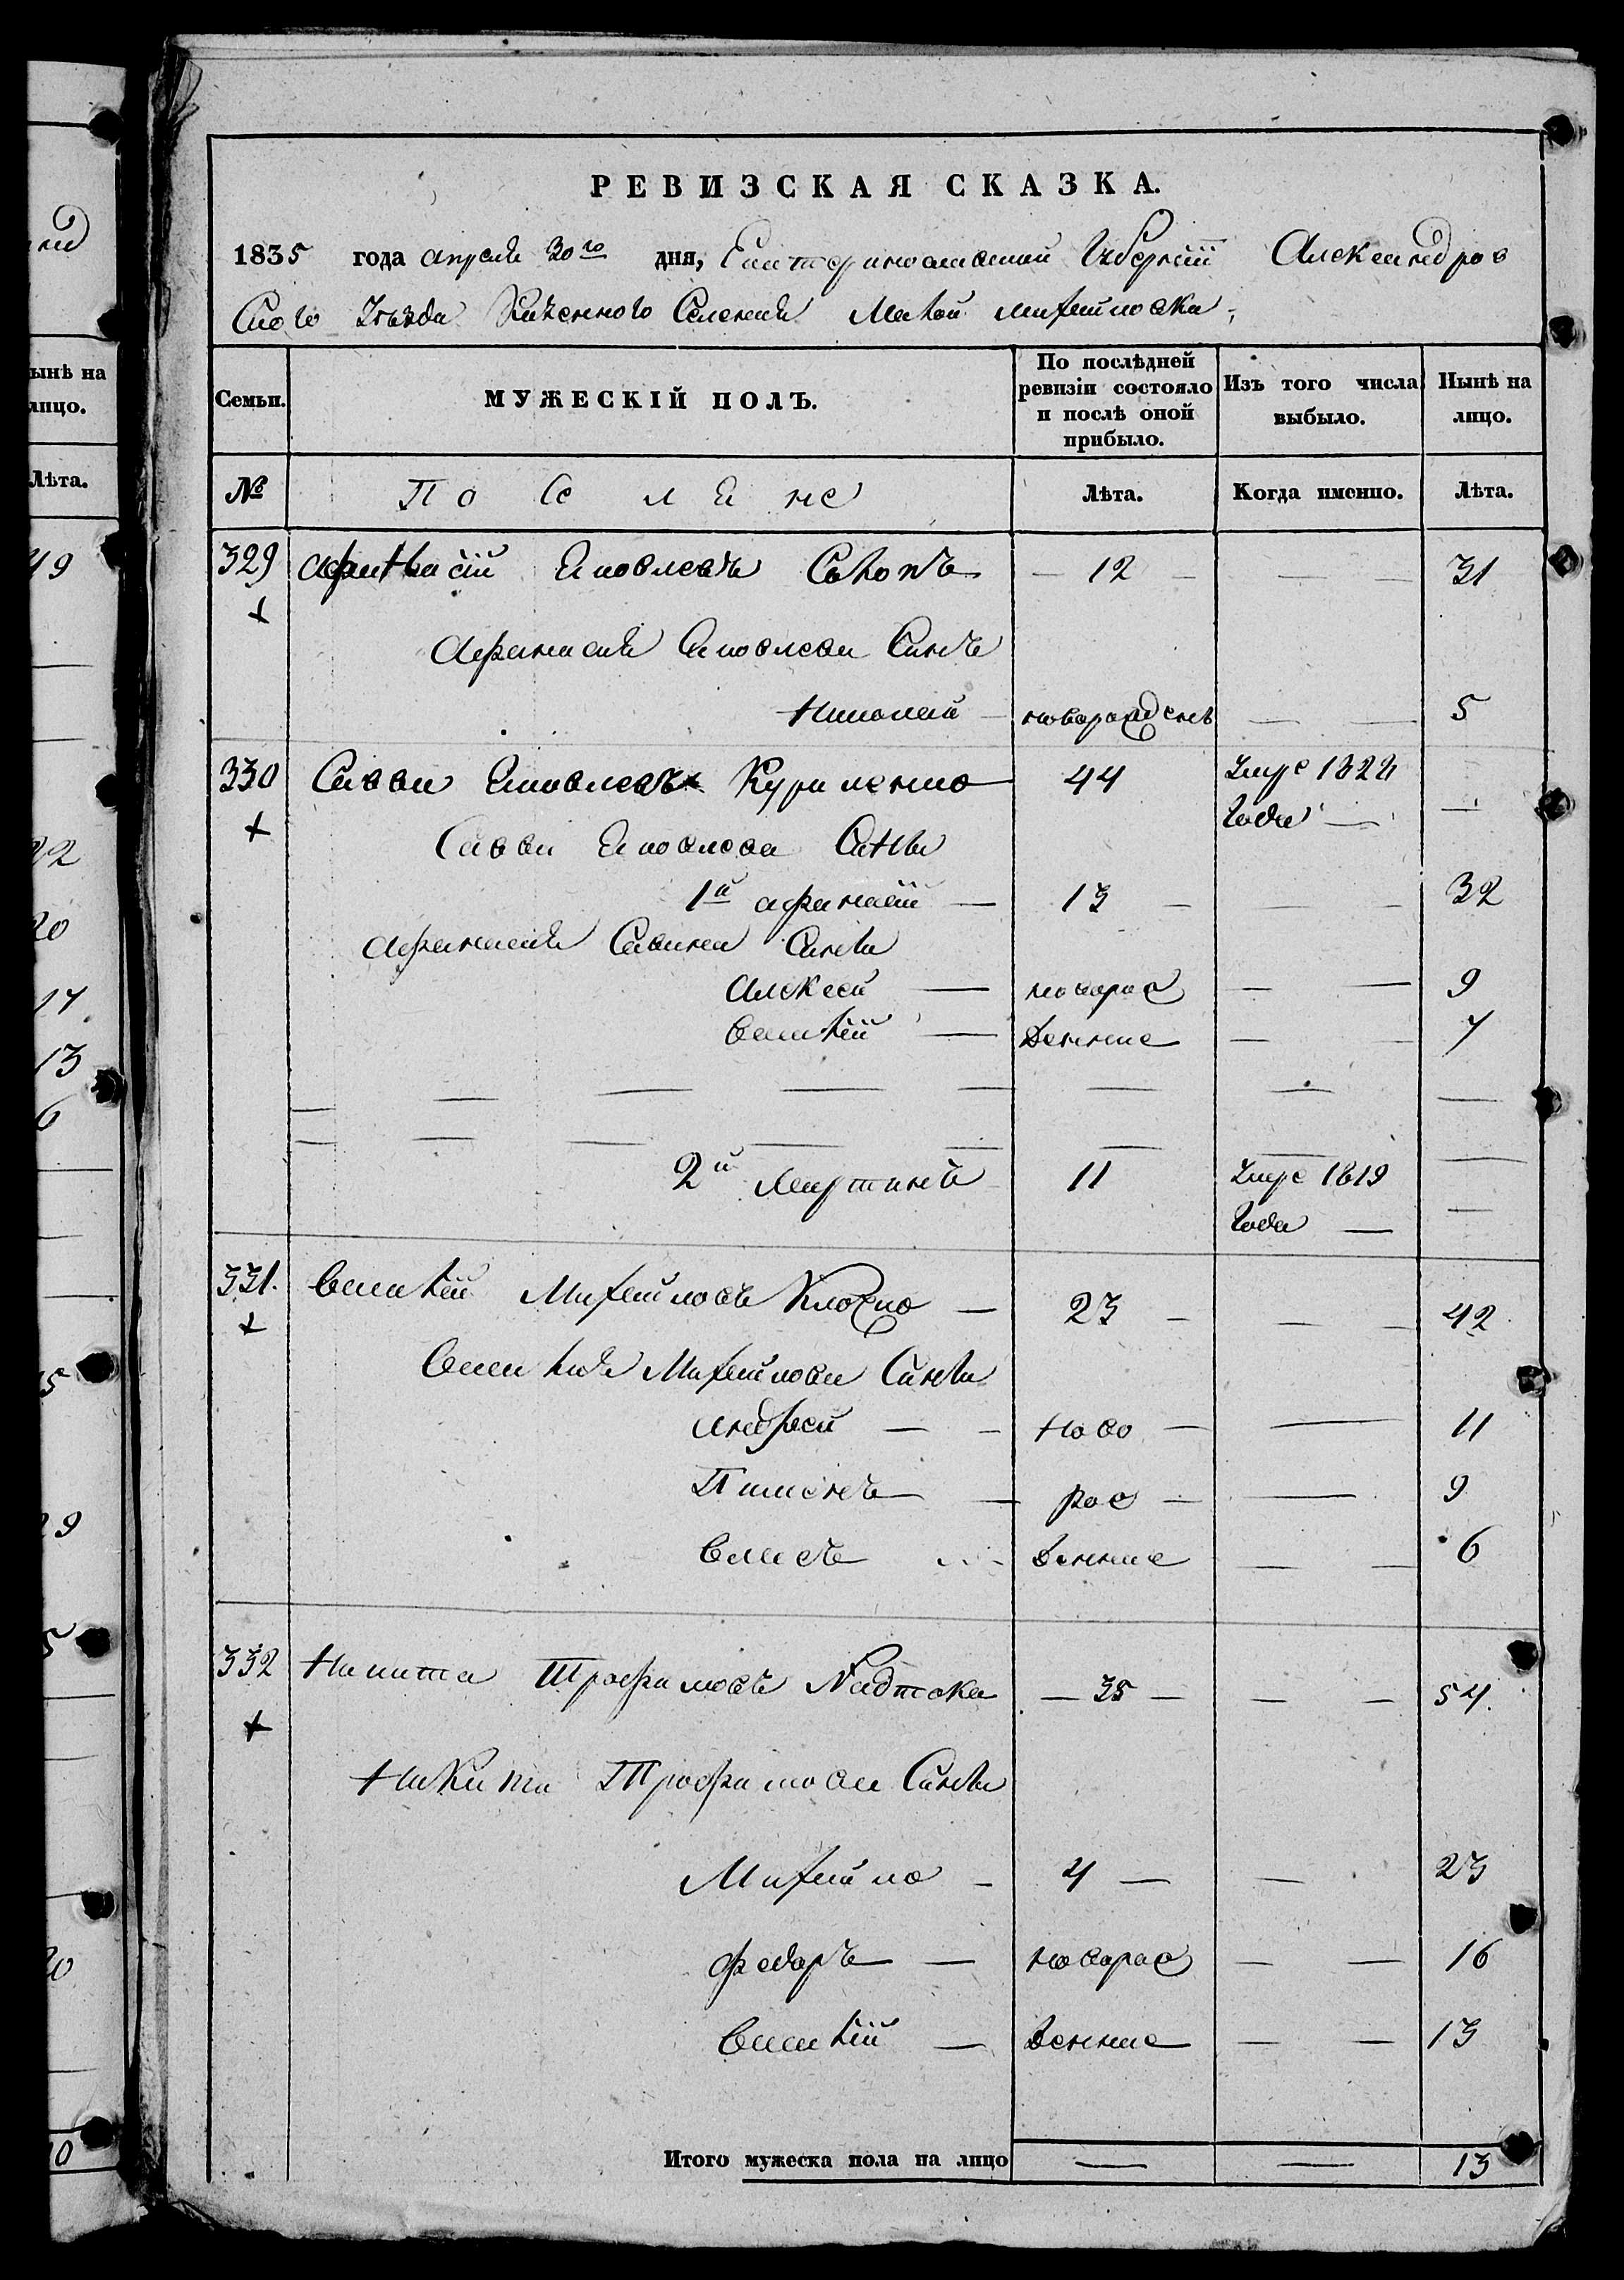 РЕВИЗСКАЯ СКАЗКА.
1835 года апреля 30го дня, Екатеринославской Губернiи Александров
ского Уѣзда Казенного Селения Малой михайловки,
Семьи.
МУЖЕСКІЙ ПОЛЪ.
По послѣдней ревизіи состояло и послѣ оной прибыло.
Изъ того числа выбыло.
Нынѣ на лицо.
№
Поселяне
Лѣта.
Когда именно.
Лѣта.
329 афанасій Яковлевъ — 12 — — — 31
Афанасия Яковлева Синъ
Николай — новорожденъ — — 5
330 Савва Яковлевъ Куриленко 44 умре 182
года — —
Саввы Яковлева Сины
1й афанасій — 13 — — — 32
афанасия Савина Сины
Алексей — новорож — — 9
Василій — денние — — 7
2й Мартинъ 11 умре 1819
года — —
331. Василій Михайловъ Клочко — 23 — — — 42
Василия Михайлова Сины
андрей — — ново — — 11
Пименъ — рож — — 9
Власъ денние — — 6
332 Никита Трофимовъ — 35 — — — 54.
Никиты Трофимова Сины
Михайло — 4 — — 23
федоръ — новорож — — 16
Василій — денние — — 13
Итого мужеска пола на лицо — — 13
ынѣ на
лицо.
Лѣта.
49
22
20
17.
13
6